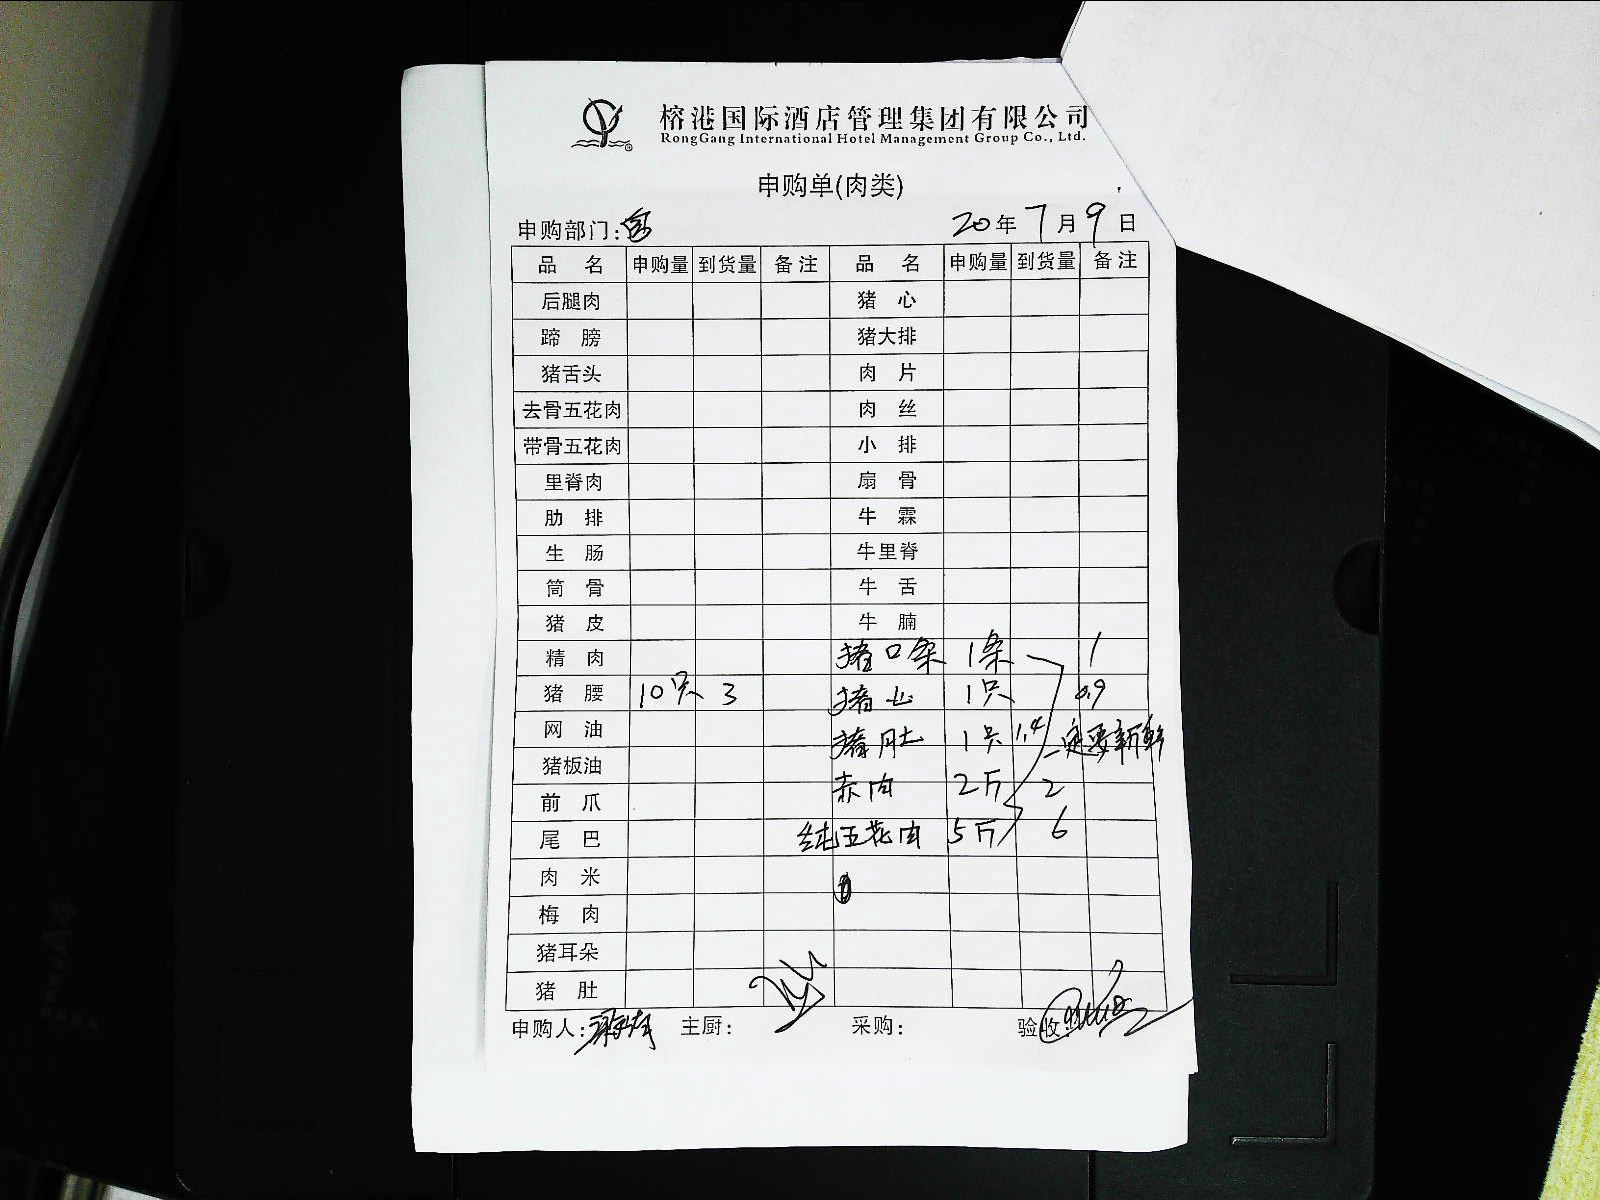 榕港国际酒店管理集团有限公司
RongGang International Hotel Management Group Co., Ltd.
申购单(肉类)
申购部门: 20年7月9日
品名 申购量 到货量 备注 品名 申购量 到货量 备注
后腿肉 猪心
蹄膀 猪大排
猪舌头 肉片
去骨五花肉 肉丝
带骨五花肉 小排
里脊肉 扇骨
肋排 牛霖
生肠 牛里脊
筒骨 牛舌
猪皮 牛腩
精肉 猪口条 1条 1
猪腰 10只 3 猪心 1只 0.9
网油 猪肚 1只 1.4 一定要新鲜
猪板油 赤肉 2斤 2
前爪
尾巴 纯五花肉 5斤 6
肉米
梅肉
猪耳朵
猪肚
申购人: 主厨: 采购: 验收: